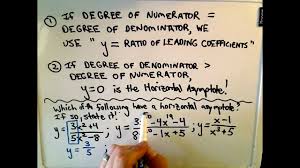 ① IF DEGREE OF NUMERATOR =
DEGREE OF DENOMINATOR, WE
USE "y = RATIO OF LEADING COEFFICIENTS"
② IF DEGREE OF DENOMINATOR >
DEGREE OF NUMERATOR,
y=0 is the Horizontal Asymptote!
Which of the following have a horizontal asymptote?
If so, state it!
y= 3x²+4 / 5x²-8 ; y= 3 8 -4x -4 / -1x+5 ; y= x-1 / x²+5
y= 3/5